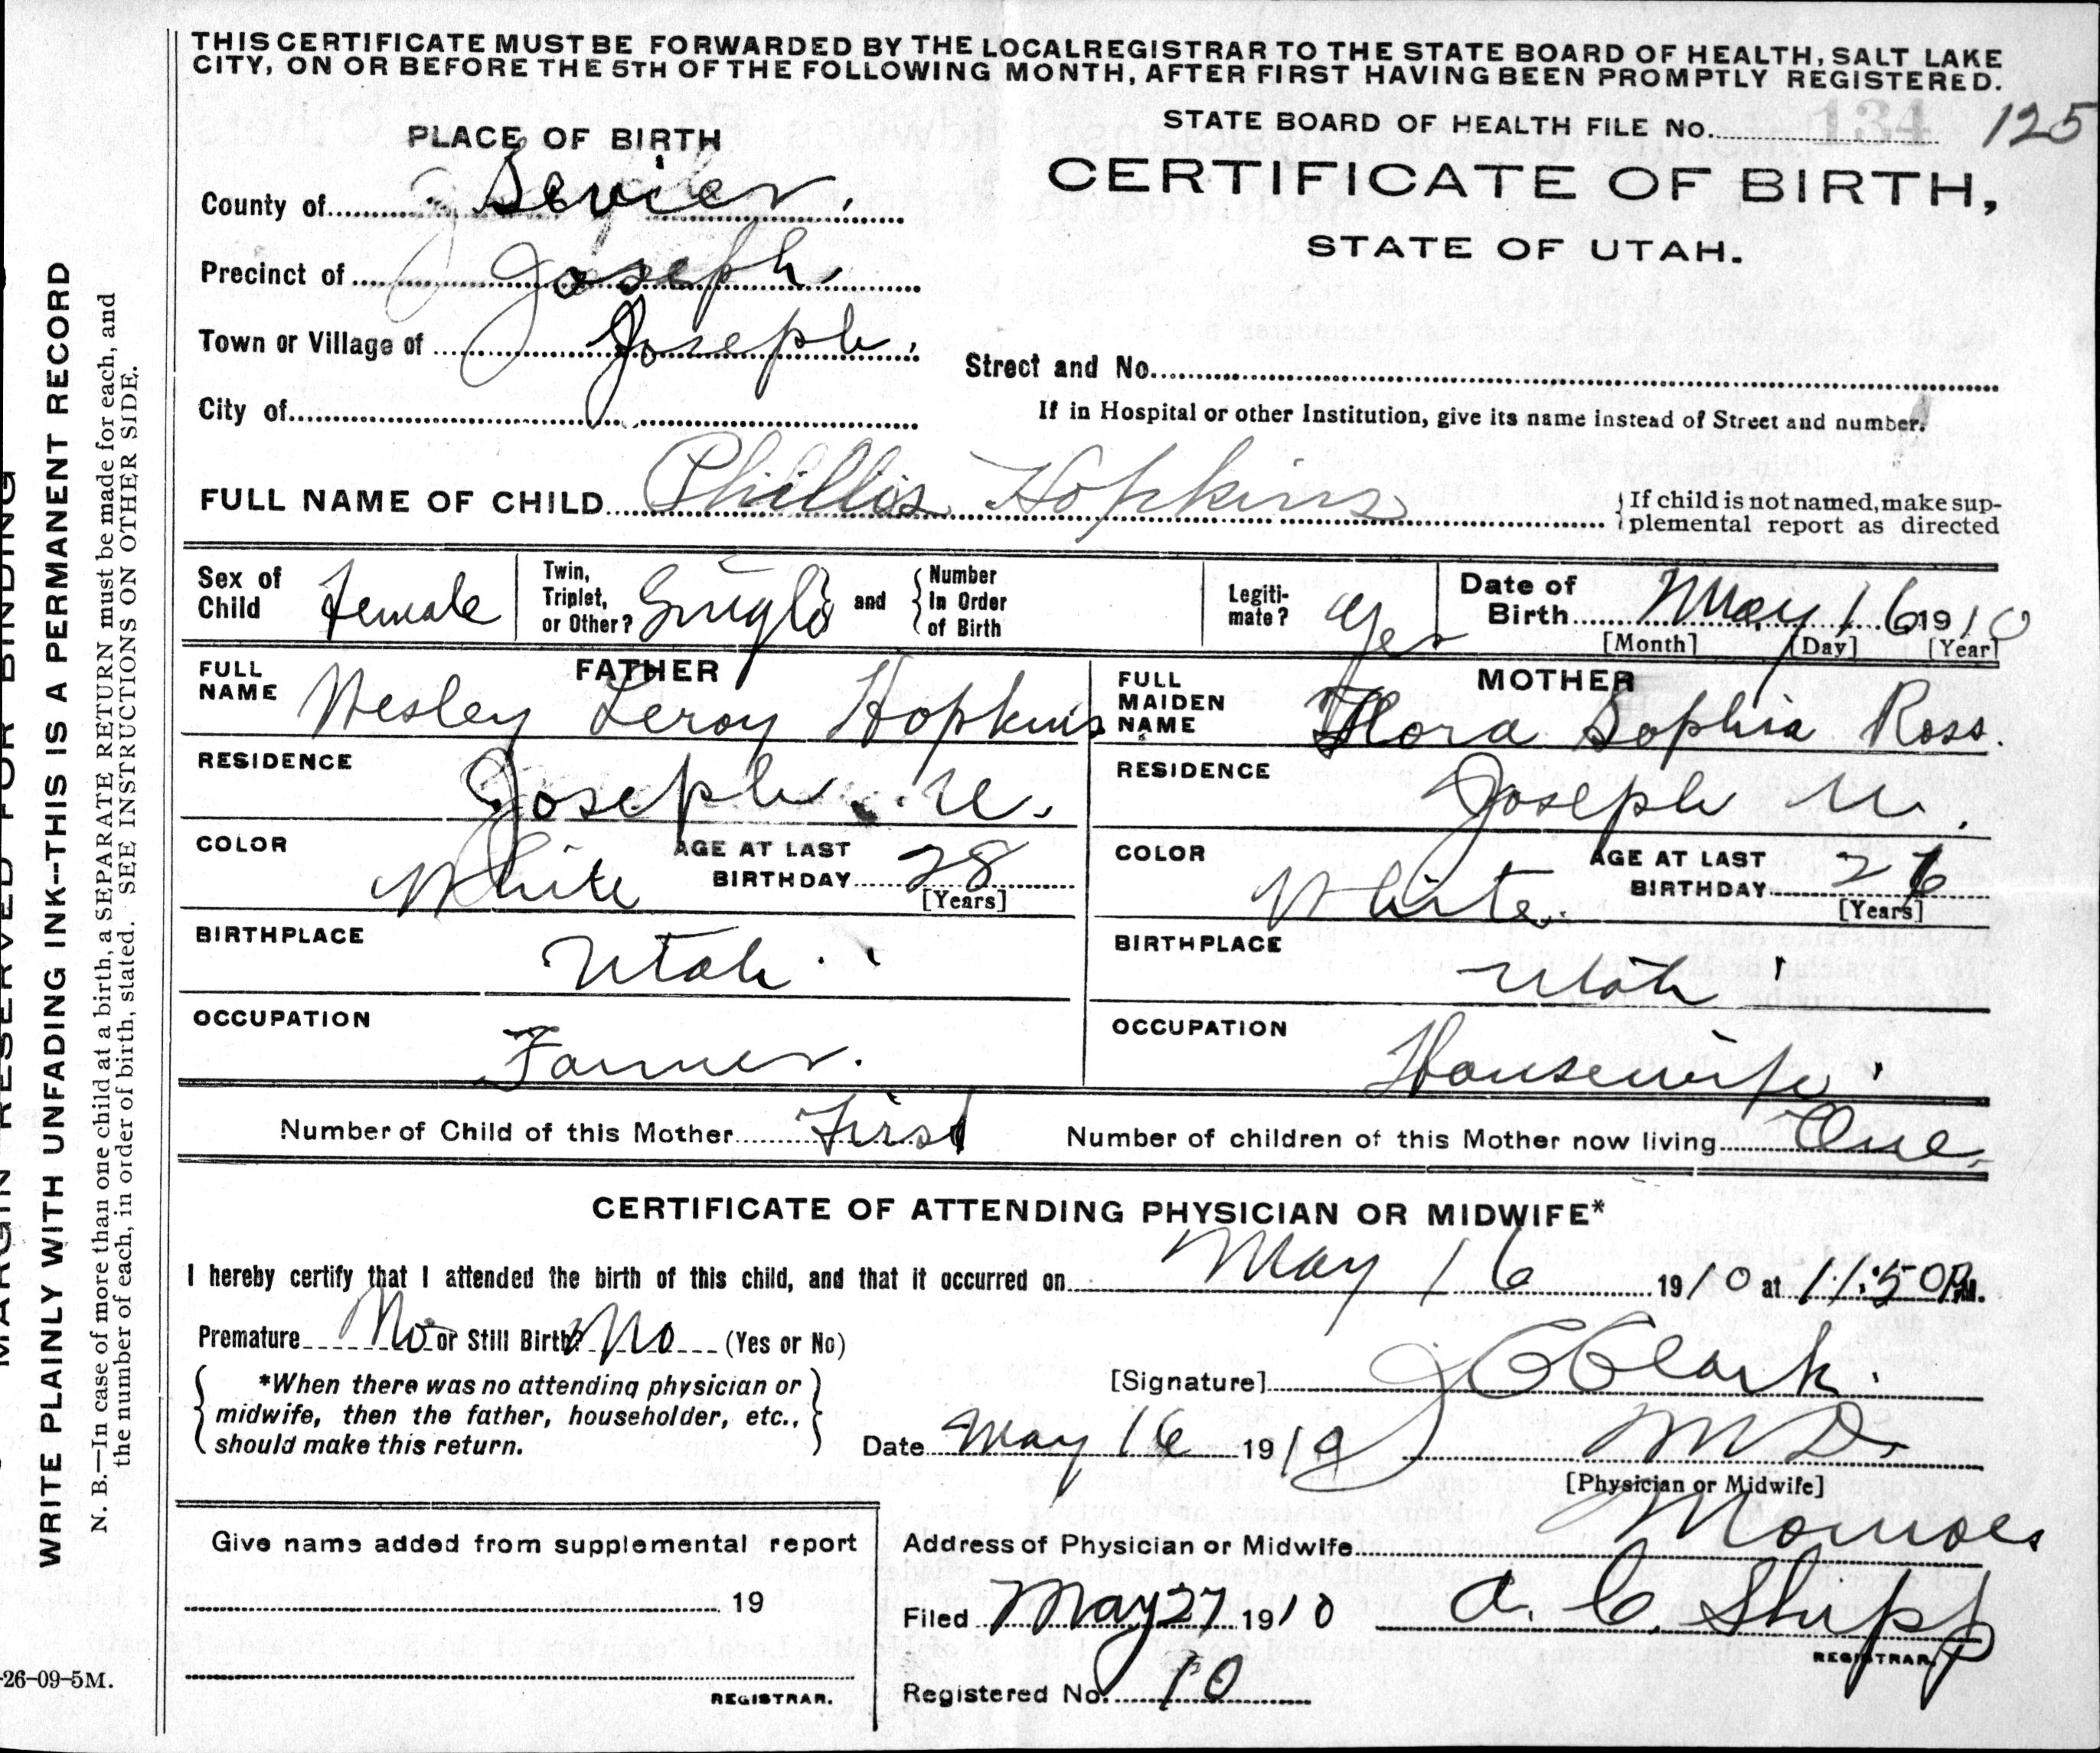 THIS CERTIFICATE MUST BE FORWARDED BY THE LOCAL REGISTRAR TO THE STATE BOARD OF HEALTH, SALT LAKE
CITY, ON OR BEFORE THE 5TH OF THE FOLLOWING MONTH, AFTER FIRST HAVING BEEN PROMPTLY REGISTERED.
STATE BOARD OF HEALTH FILE No. 134 125
PLACE OF BIRTH
CERTIFICATE OF BIRTH,
STATE OF UTAH.
County of Sevier.
Precinct of Joseph.
Town or Village of Joseph.
Street and No.
City of
If in Hospital or other Institution, give its name instead of Street and number.
FULL NAME OF CHILD Phillis Hopkins
If child is not named, make sup-
plemental report as directed
Sex of Child Female
Twin, Triplet, or Other? Single and Number In Order of Birth
Legiti-mate? Yes
Date of Birth May 16 1910
[Month] [Day] [Year]
FATHER
FULL NAME Wesley Leroy Hopkins
MOTHER
FULL MAIDEN NAME Flora Sophia Ross.
RESIDENCE Joseph. U.
RESIDENCE Joseph U.
COLOR White AGE AT LAST BIRTHDAY 28 [Years]
COLOR White. AGE AT LAST BIRTHDAY 26 [Years]
BIRTHPLACE Utah.
BIRTHPLACE Utah
OCCUPATION Farmer.
OCCUPATION Housewife
Number of Child of this Mother First
Number of children of this Mother now living One.
CERTIFICATE OF ATTENDING PHYSICIAN OR MIDWIFE*
I hereby certify that I attended the birth of this child, and that it occurred on May 16 1910 at 11:50 P.M.
Premature No or Still Birth? No (Yes or No)
*When there was no attending physician or
midwife, then the father, householder, etc.,
should make this return.
[Signature] J C Clark.
Date May 16 1910 M D.
[Physician or Midwife]
Give name added from supplemental report
19
REGISTRAR.
Address of Physician or Midwife Monroe
Filed May 27 1910 A. C. Shipp
REGISTRAR.
Registered No. 10
MARGIN RESERVED FOR BINDING
WRITE PLAINLY WITH UNFADING INK--THIS IS A PERMANENT RECORD
N. B.—In case of more than one child at a birth, a SEPARATE RETURN must be made for each, and
the number of each, in order of birth, stated. SEE INSTRUCTIONS ON OTHER SIDE.
-26-09-5M.